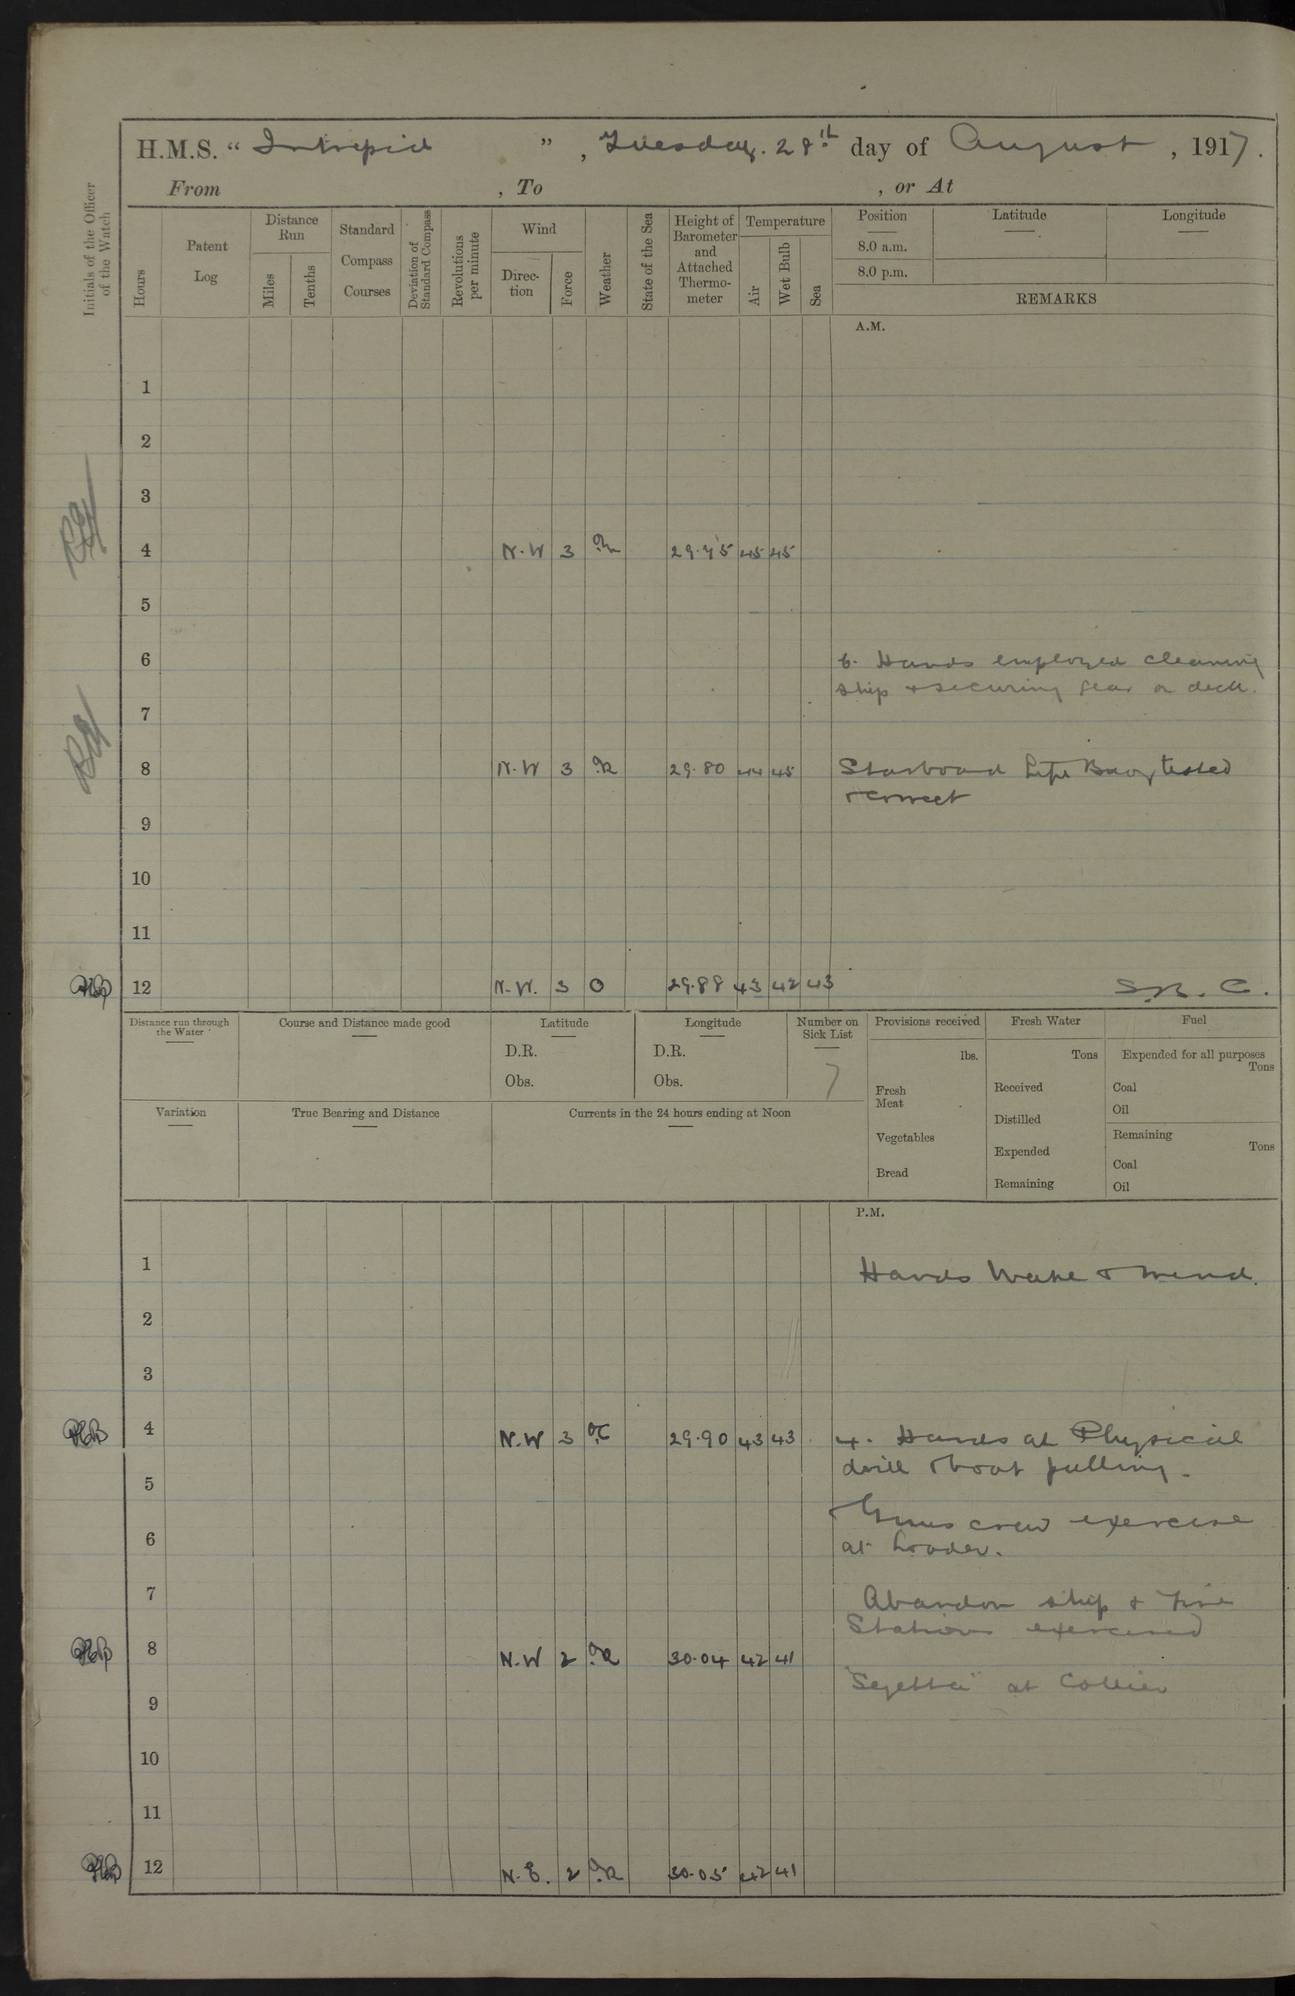 H.M.S. “ Intrepid ” , Tuesday. 28th day of August , 1917.
From , To , or At
Initials of the Officer of the Watch
Hours
Patent Log
Distance Run
Miles
Tenths
Standard Compass Courses
Deviation of Standard Compass
Revolutions per minute
Wind
Direc-tion
Force
Weather
State of the Sea
Height of Barometer and Attached Thermo-meter
Temperature
Air
Wet Bulb
Sea
Position
8.0 a.m.
8.0 p.m.
Latitude
Longitude
REMARKS
A.M.
1
2
3
4 N.W 3 29.75 45 45
5
6 6. Hands employed cleaning
ship & securing gear on deck.
7
8 N.W 3 29.80 44 45 Starboard Life Buoy tested
& correct
9
10
11
12 N.W. 3 O 29.88 43 42 43
Distance run through the Water
Course and Distance made good
Latitude
D.R.
Obs.
Longitude
D.R.
Obs.
Number on Sick List
7
Provisions received
lbs.
Fresh Meat
Vegetables
Bread
Fresh Water
Tons
Received
Distilled
Expended
Remaining
Fuel
Expended for all purposes
Tons
Coal
Oil
Remaining
Tons
Coal
Oil
Variation
True Bearing and Distance
Currents in the 24 hours ending at Noon
P.M.
1 Hands Make & Mend.
2
3
4 N.W 3 29.90 43 43 4. Hands at Physical
drill & boat pulling.
5
Guns crew exercise
6 at Loader.
7 Abandon ship & Fire
Stations exercised
8 N.W 2 30.04 42 41
at Collier
9
10
11
12 N.E. 2 30.05 42 41